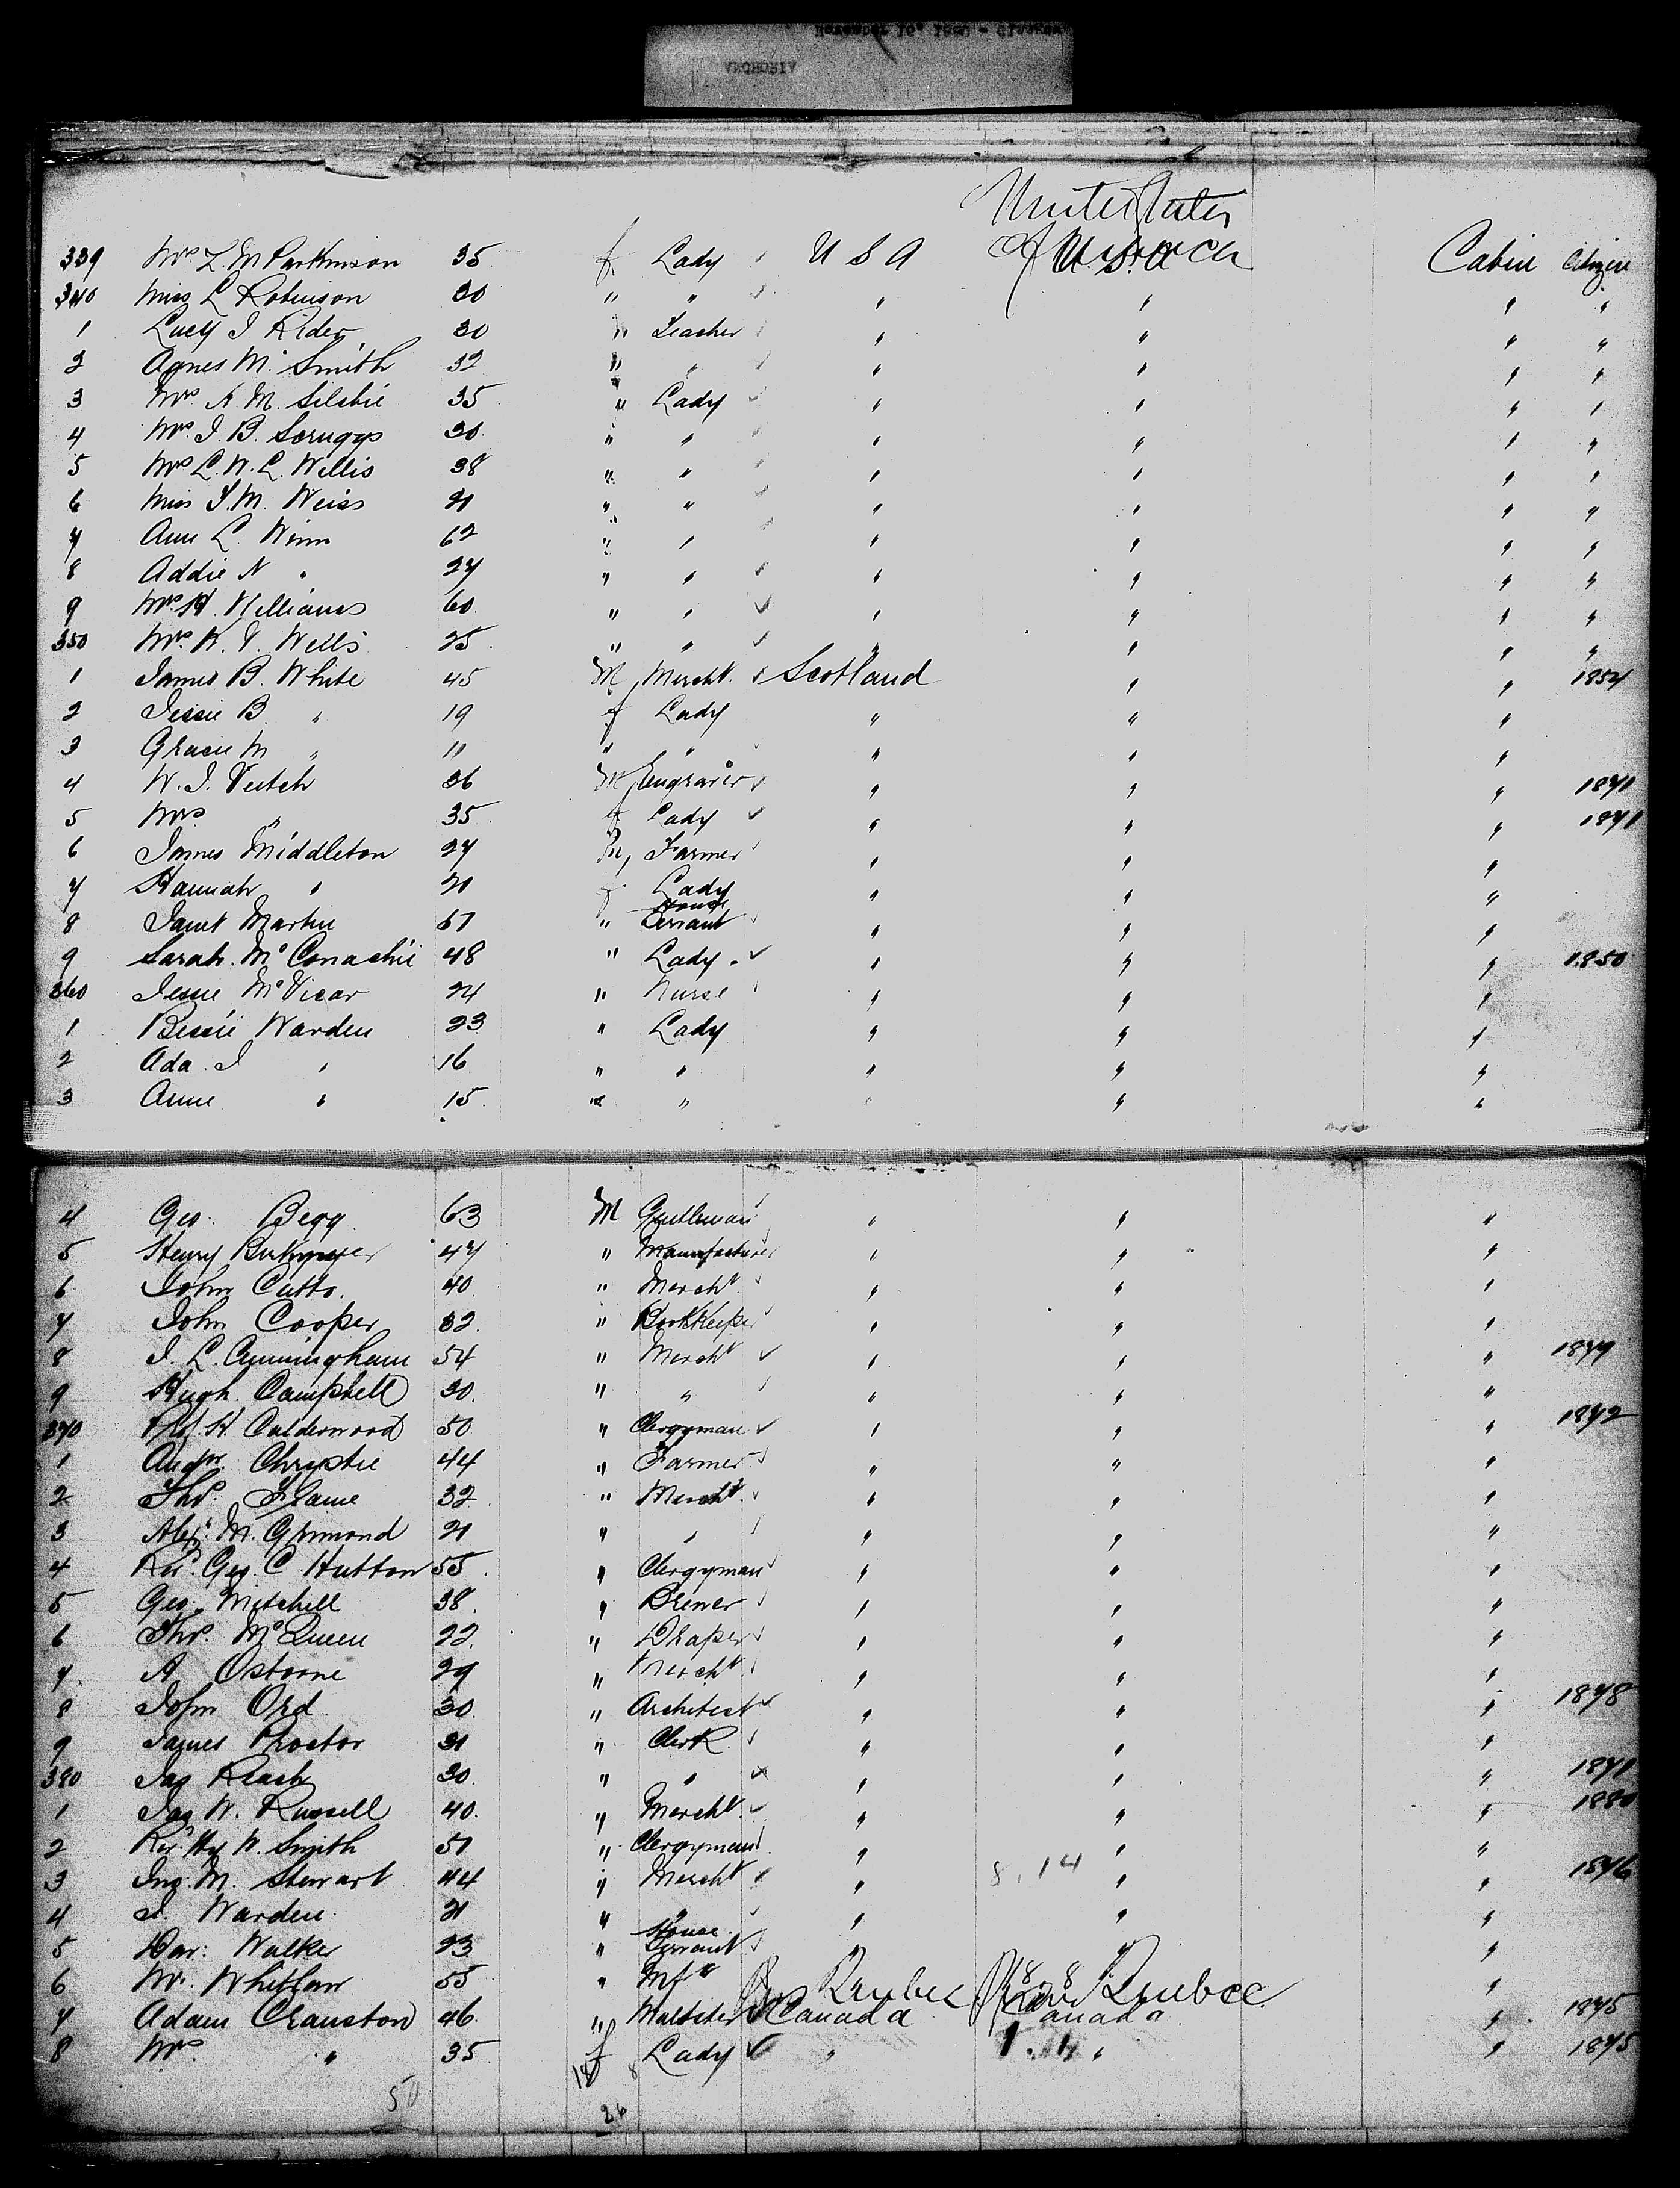 339 Mrs L. M Parkinson 35 f. Lady U S A United States of America U.S.A Cabin Citizen
340 Miss L Robinson 30 " " " " " "
1 Lucy J Rider 30 " Teacher " " " "
2 Agnes M. Smith 32 " " " " " "
3 Mrs A M. Silshie 35 " Lady " " " "
4 Mrs J. B. Scruggs 30 " " " " " "
5 Mrs L. W. L. Willis 38 " " " " " "
6 Miss J. M. Weiss 21 " " " " " "
7 Ann L. Winn 62 " " " " " "
8 Addie N " 27 " " " " " "
9 Mrs H. Williams 60 " " " " " "
350 Mrs K. V. Wells 25 " " " " " "
1 James B. White 45 M Mercht. Scotland " " 1854
2 Jessie B " 19 f Lady " " "
3 Gracie M " 11 " " " " "
4 W. J. Veitch 36 M Engraver " " " 1871
5 Mrs " 35 f Lady " " " 1871
6 James Middleton 27 M Farmer " " "
7 Hannah " 21 f Lady " " "
8 Janet Martin 51 " House Servant " " "
9 Sarah McConachie 48 " Lady " " " 1850
360 Jessie McVicar 24 " Nurse " " "
1 Bessie Warden 23 " Lady " " "
2 Ada J " 16 " " " " "
3 Annie " 15 " " " " "
4 Geo. Begg 63 M Gentleman " " "
5 Henry Birkmyer 47 " Manufacturer " " "
6 John Catto. 40 " Mercht " " "
7 John Cooper 32 " BookKeeper " " "
8 J. L. Cunningham 54 " Mercht " " " 1879
9 Hugh Campbell 30 " " " " "
370 Prof H. Calderwood 50 " Clergyman " " " 1872
1 Andw. Chrystie 44 " Farmer " " "
2 Thos. Flame 32 " Mercht. " " "
3 Alexr. M. Grimond 21 " " " " "
4 Revd. Geo. C Hutton 55 " Clergyman " " "
5 Geo. Mitchell 38 " Brewer " " "
6 Thos. McQueen 22 " Draper " " "
7 A Osborne 29 " Mercht. " " "
8 John Ord 30 " Architect " " " 1878
9 James Proctor 31 " Clerk " " "
380 Jas Reach 30 " " " " " 1871
1 Jas W. Russell 40 " Mercht. " " " 1880
2 Revd. Hy W. Smith 51 " Clergyman " " "
3 Jno. M. Stewart 44 " Mercht " 8.14 " " 1876
4 J. Warden 21 " " " " "
5 Dav: Walker 23 " House Servant " " "
6 Wm. Whitlaw 55 " Mfr Quebec Quebec "
7 Adam Cranston 46 " Maltster Canada Canada " 1875
8 Mrs " 35 f Lady " " " 1875
50 18 8
26